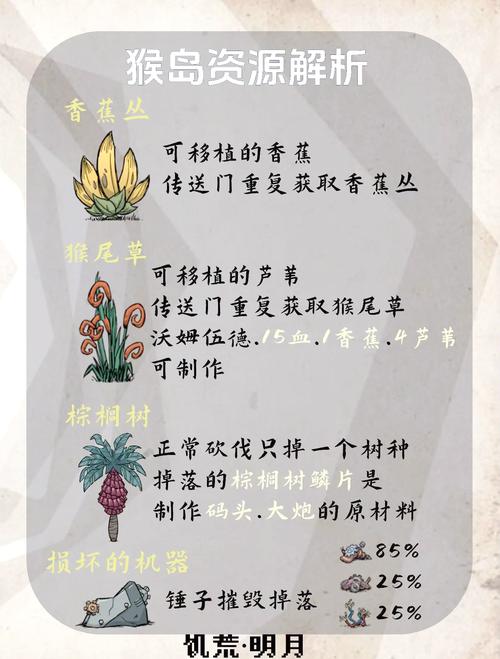 猴岛资源解析
香蕉丛
可移植的香蕉
传送门重复获取香蕉丛
猴尾草
可移植的芦苇
传送门重复获取猴尾草
沃姆伍德.15血.1香蕉.4芦苇
可制作
棕榈树
正常砍伐只掉一个树种
掉落的棕榈树鳞片是
制作码头.大炮的原材料
损坏的机器
锤子摧毁掉落
85%
25%
25%
饥荒·明月